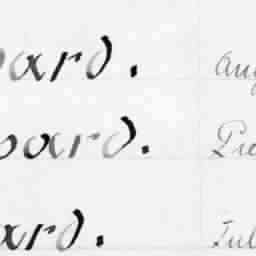 ard. Aug
oard. Pie
ard. Jul